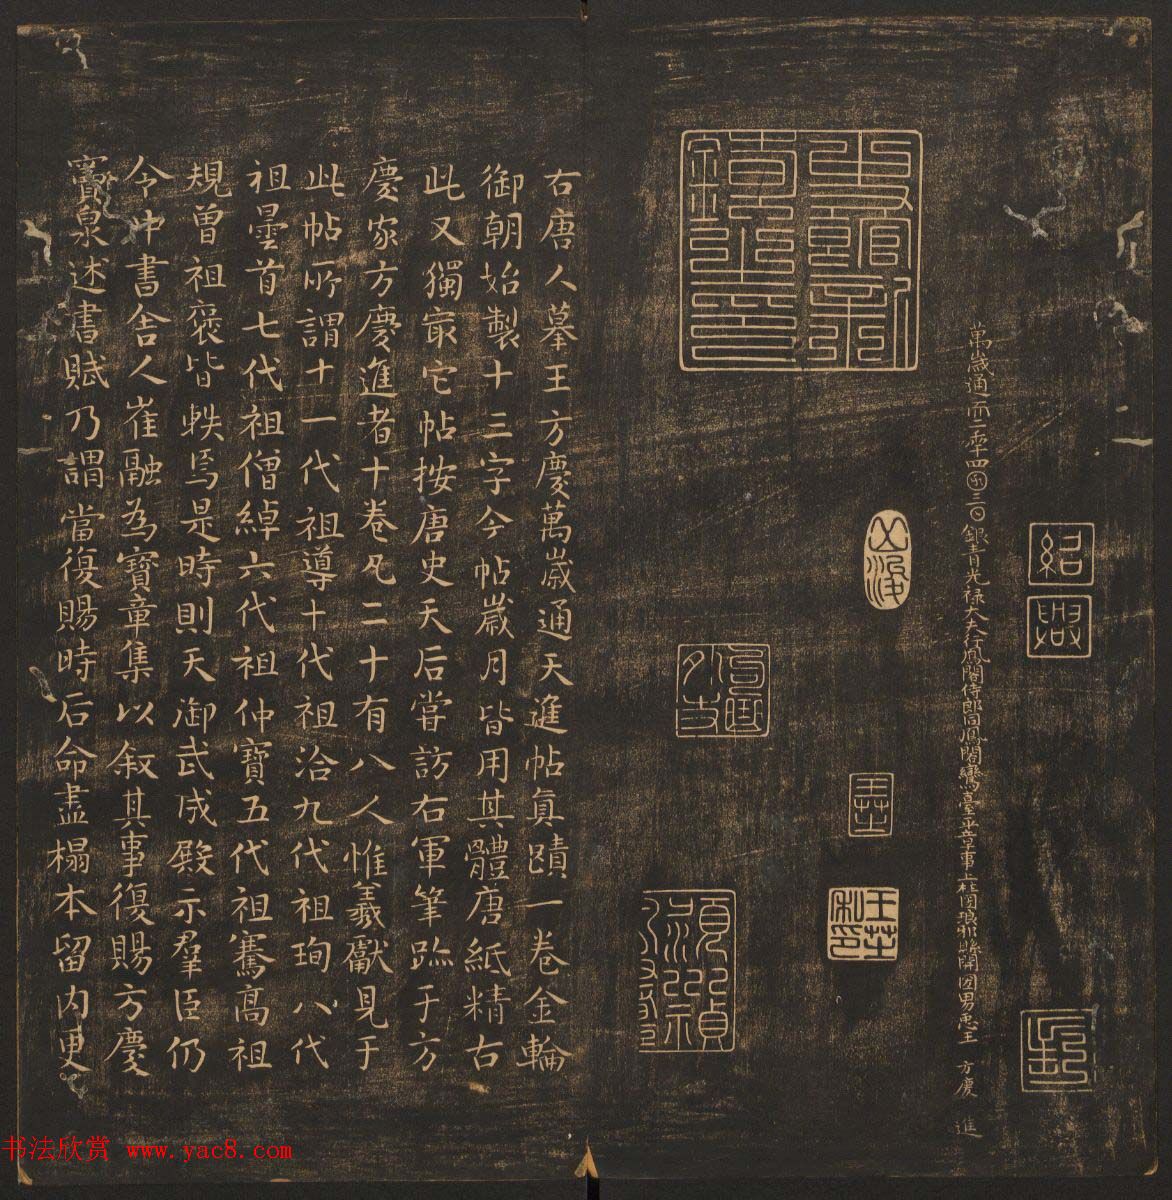 紹
興
萬歲通𠀑二秊四囝三〇銀青光祿大夫行鳳閣侍郎同鳳閣鸞臺平章事上柱圀琅邪縣開圀男𢘑王 方慶 進
右唐人摹王方慶萬歲通天進帖真蹟一卷金輪
御朝始製十三字今帖歲月皆用其體唐紙精古
此又獨最它帖按唐史天后嘗訪右軍筆跡于方
慶家方慶進者十卷凡二十有八人惟羲獻見于
此帖所謂十一代祖導十代祖洽九代祖珣八代
祖曇首七代祖僧綽六代祖仲寶五代祖騫高祖
規曾祖褒皆軼焉是時則天御武成殿示羣臣仍
令中書舍人崔融為寶章集以敘其事復賜方慶
寶泉述書賦乃謂當復賜時后命盡榻本留內更
书法欣赏 www.yac8.com